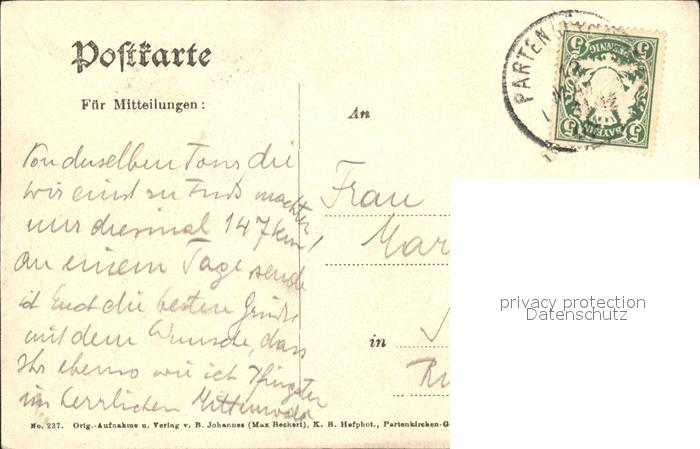 Postkarte
Für Mitteilungen:
An
PARTENKIRCHEN
5 PFENNIG 5
5 BAYERN 5
Von derselben Tour die
wir einst zu Fuß machten
nur diesmal 147 km,
an einem Tage sende
ich Euch die besten Grüße
mit dem Wunsche, dass
Ihr ebenso wie ich Pfingsten
im herrlichen Mittenwald
Frau
Mar
in
privacy protection
Datenschutz
No. 237. Orig.-Aufnahme u. Verlag v. B. Johannes (Max Beckert), K. B. Hofphot., Partenkirchen-G